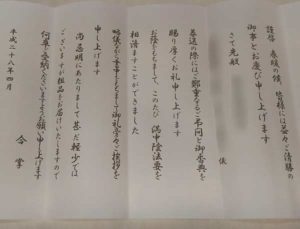 謹啓 春暖の候 皆様には益々ご清勝の
御事とお慶び申し上げます
さて先般
儀
葬送の際にはご鄭重なるご弔問と御香典を
賜り厚くお礼申し上げます
お陰をもちまして、このたび 満中陰法要を
相済ますことができました
略儀ながら書中をもちまして御礼かたがたご挨拶を
申し上げます
尚 忌明にあたりまして 甚だ軽少では
ございますが粗品をお届けいたしますので
何卒ご受納くださいますようお願い申し上げます
平成二十八年四月
合掌